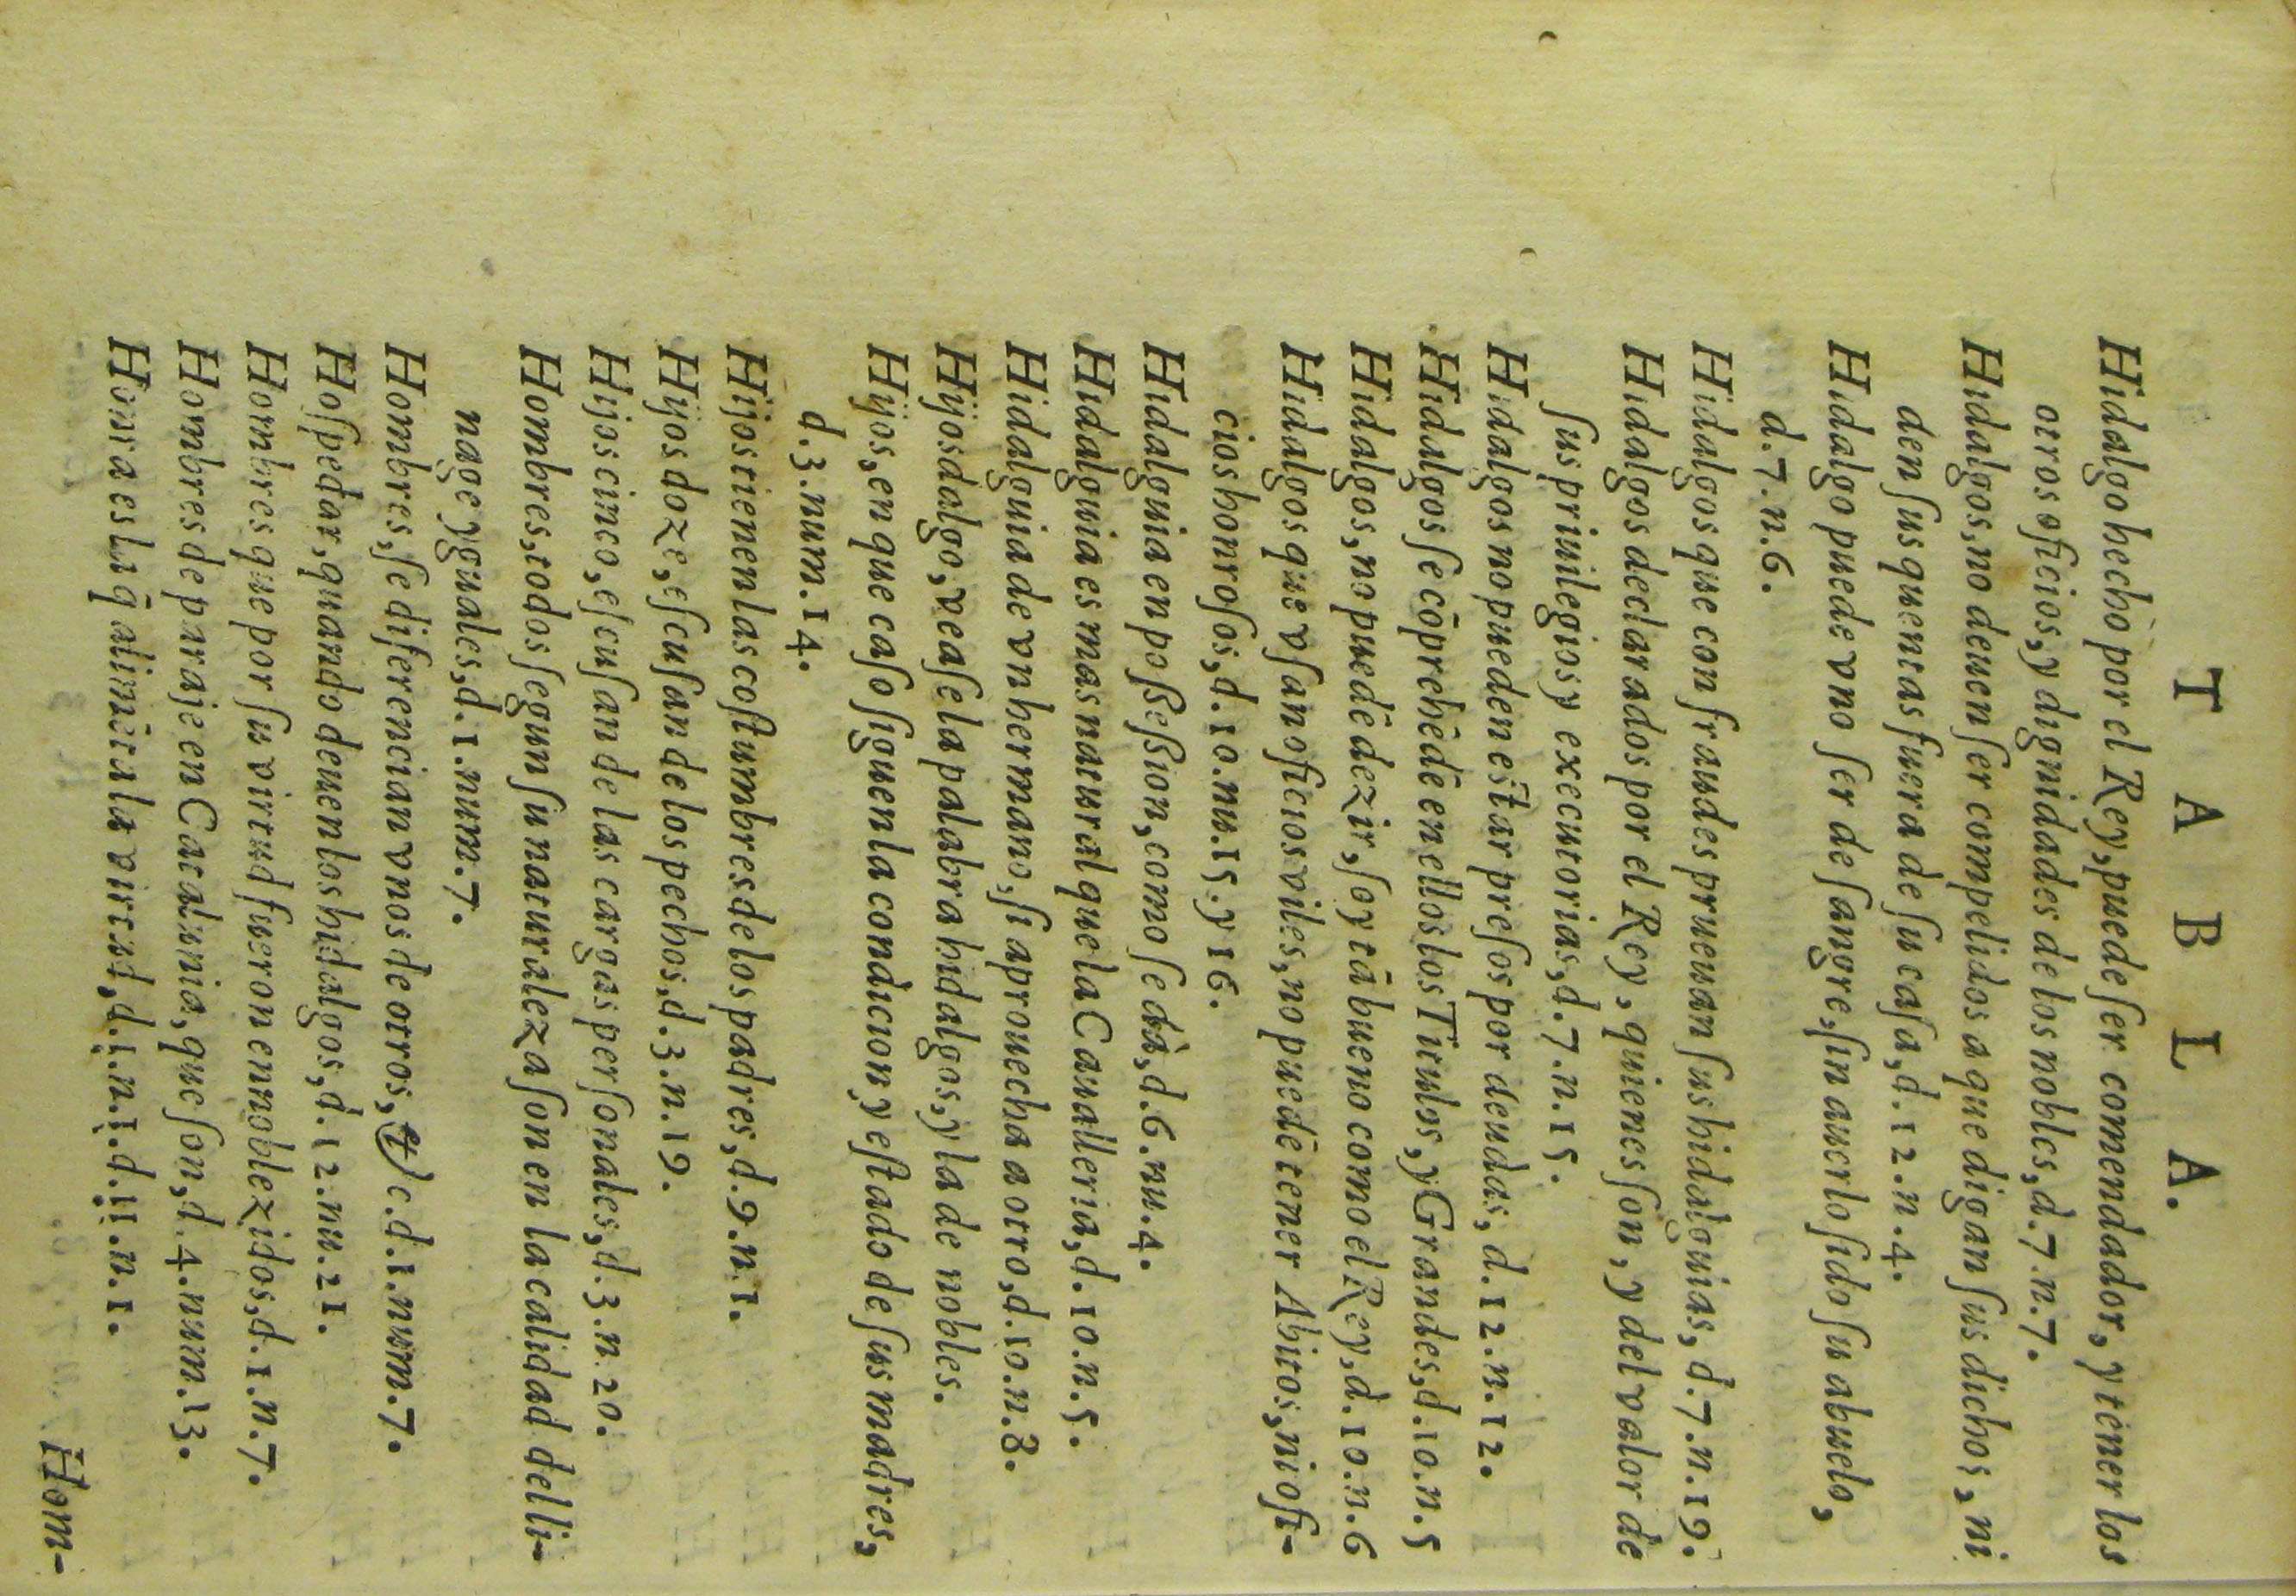 T A B L A.
Hidalgo hecho por el Rey, puede ser comendador, y tener los
otros oficios, y dignidades de los nobles, d. 7. n. 7.
Hidalgos, no deuen ser compelidos a que digan sus dichos, ni
den sus quentas fuera de su casa, d. 12. n. 4.
Hidalgo puede vno ser de sangre, sin auerlo sido su abuelo,
d. 7. n. 6.
Hidalgos que con fraudes prueuan sus hidalguias, d. 7. n. 19.
Hidalgos declarados por el Rey, quienes son, y del valor de
sus priuilegios y executorias, d. 7. n. 15.
Hidalgos no pueden estar presos por deudas, d. 12. n. 12.
Hidalgos se cōprehēdē en ellos los Titulos, y Grandes, d. 10. n. 5
Hidalgos, no puedē dezir, soy tā bueno como el Rey, d. 10. n. 6
Hidalgos que vsan oficios viles, no puedē tener Abitos, ni ofi-
cios honrosos, d. 10. nu. 15. y 16.
Hidalguia en possession, como se dà, d. 6. nu. 4.
Hidalguia es mas natural que la Caualleria, d. 10. n. 5.
Hidalguia de vn hermano, si aprouecha a otro, d. 10. n. 8.
Hijosdalgo, vease la palabra hidalgos, y la de nobles.
Hijos, en que caso siguen la condicion y estado de sus madres,
d. 3. num. 14.
Hijos tienen las costumbres de los padres, d. 9. n. 1.
Hijos doze, escusan de los pechos, d. 3. n. 19.
Hijos cinco, escusan de las cargas personales, d. 3. n. 20.
Hombres, todos segun su naturaleza son en la calidad del li-
nage yguales, d. 1. num. 7.
Hombres, se diferencian vnos de otros, &c. d. 1. num. 7.
Hospedar, quando deuen los hidalgos, d. 12. nu. 21.
Hombres que por su virtud fueron ennoblezidos, d. 1. n. 7.
Hombres de paraje en Catalunia, que son, d. 4. num. 13.
Honra es la q̄ alimēta la virtud, d. 1. n. 1. d. 11. n. 1.
Hom-